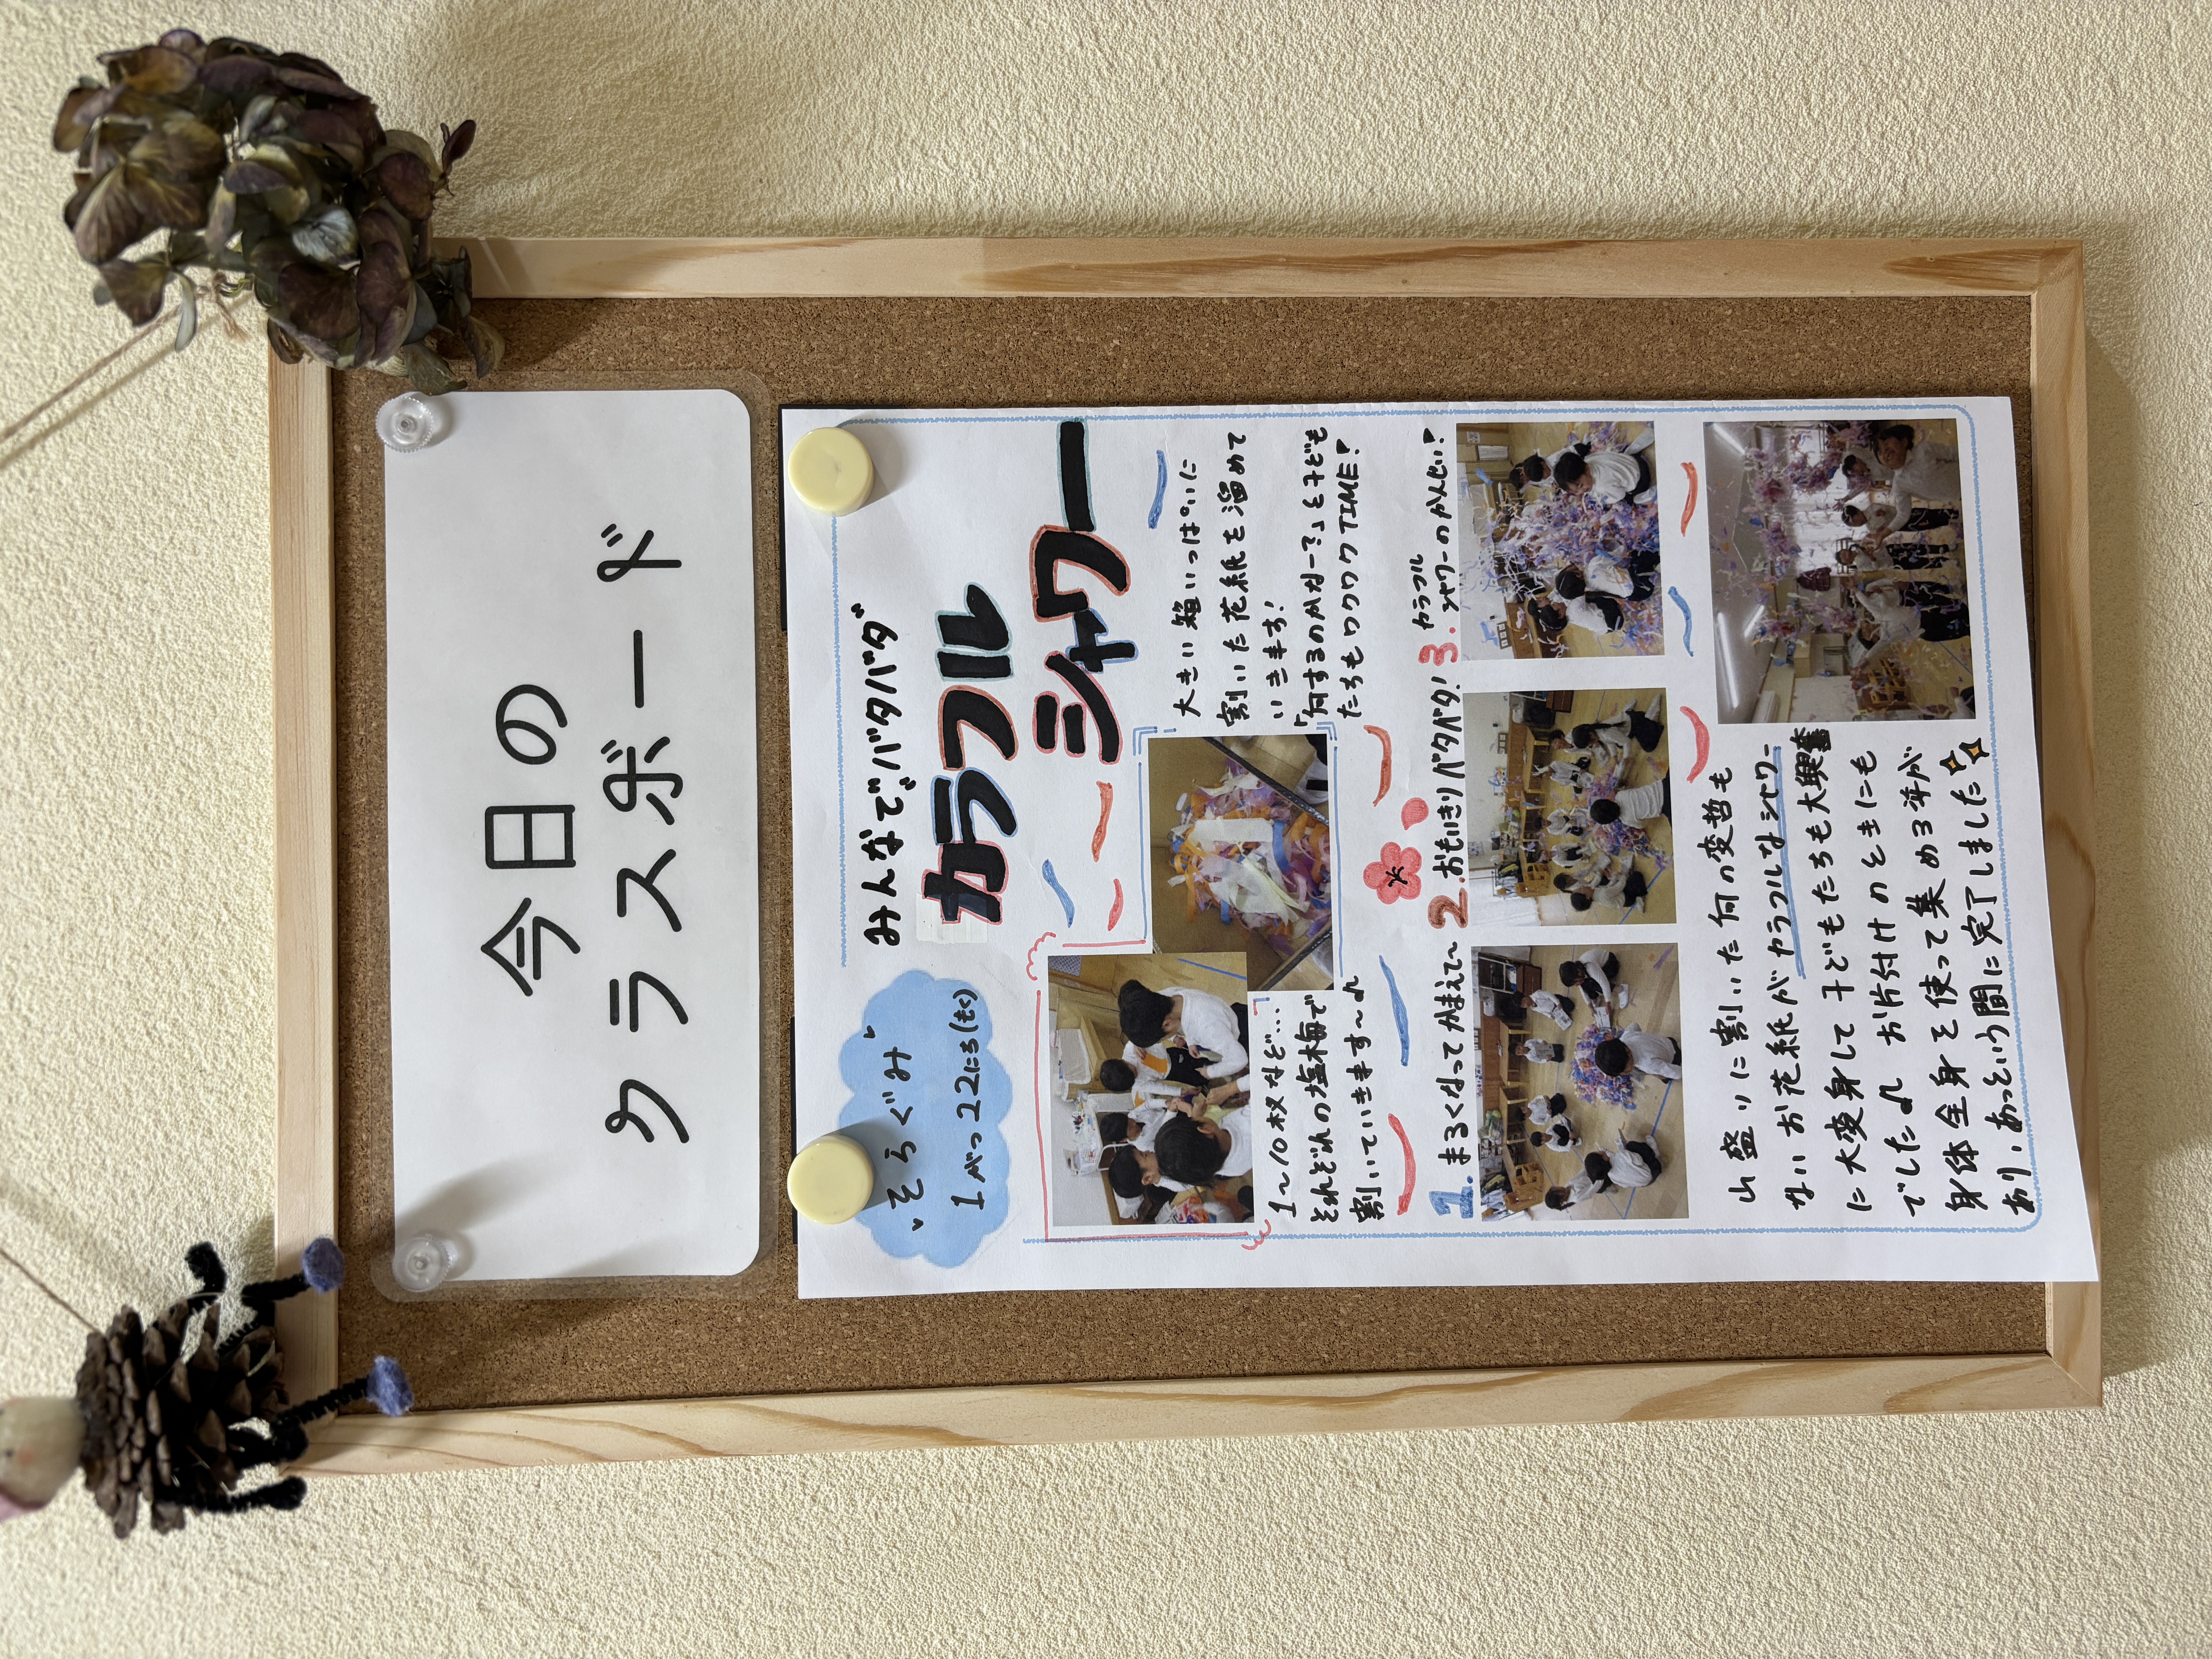 今日の
クラスボード
そらぐみ
1がつ22にち(もく)
みんなでバタバタ
カラフル
シャワー
大きい箱いっぱいに
割いた花紙を溜めて
いきます!
「何するのかなー?」と子ども
たちもワクワクTIME!
1〜10枚など...
それぞれの塩梅で
割いていきます〜♪
1.まるくなってかまえて〜
2.おもいきりバタバタ!
3.カラフル
シャワーのかんせい!
山盛りに割いた何の変哲も
ないお花紙がカラフルなシャワー
に大変身して子どもたちも大興奮
でした♪お片付けのときにも
身体全身を使って集める姿が
あり、あっという間に完了しました